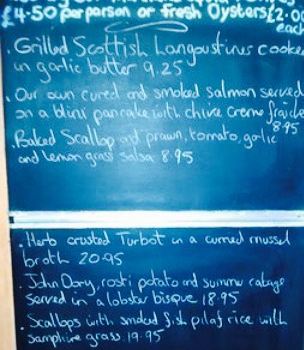 £4.50 per person or fresh Oysters £2.0
each
. Grilled Scottish Langoustines cooked
in garlic butter 9.25
. Our own cured and smoked salmon served
on a blini pancake with chive creme fraiche
8.95
. Baked Scallop and prawn, tomato, garlic
and lemon grass salsa 8.95
. Herb crusted Turbot in a curried mussel
broth 20.95
. John Dory, rosti potato and summer cabage
served in a lobster bisque 18.95
. Scallops with smoked fish pilaf rice with
samphire grass. 19.95